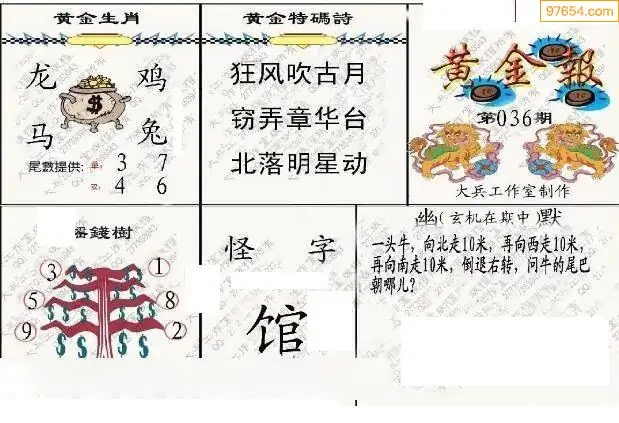 97654.com
黄金生肖
龙 鸡
马 兔
尾數提供: 单: 3 7
双: 4 6
黄金特碼詩
狂风吹古月
窃弄章华台
北落明星动
黄金報
第036期
大兵工作室制作
錢樹
3 1
5 8
9 2
怪字
馆
幽(玄机在期中)默
一头牛，向北走10米，再向西走10米，
再向南走10米，倒退右转，问牛的尾巴
朝哪儿？